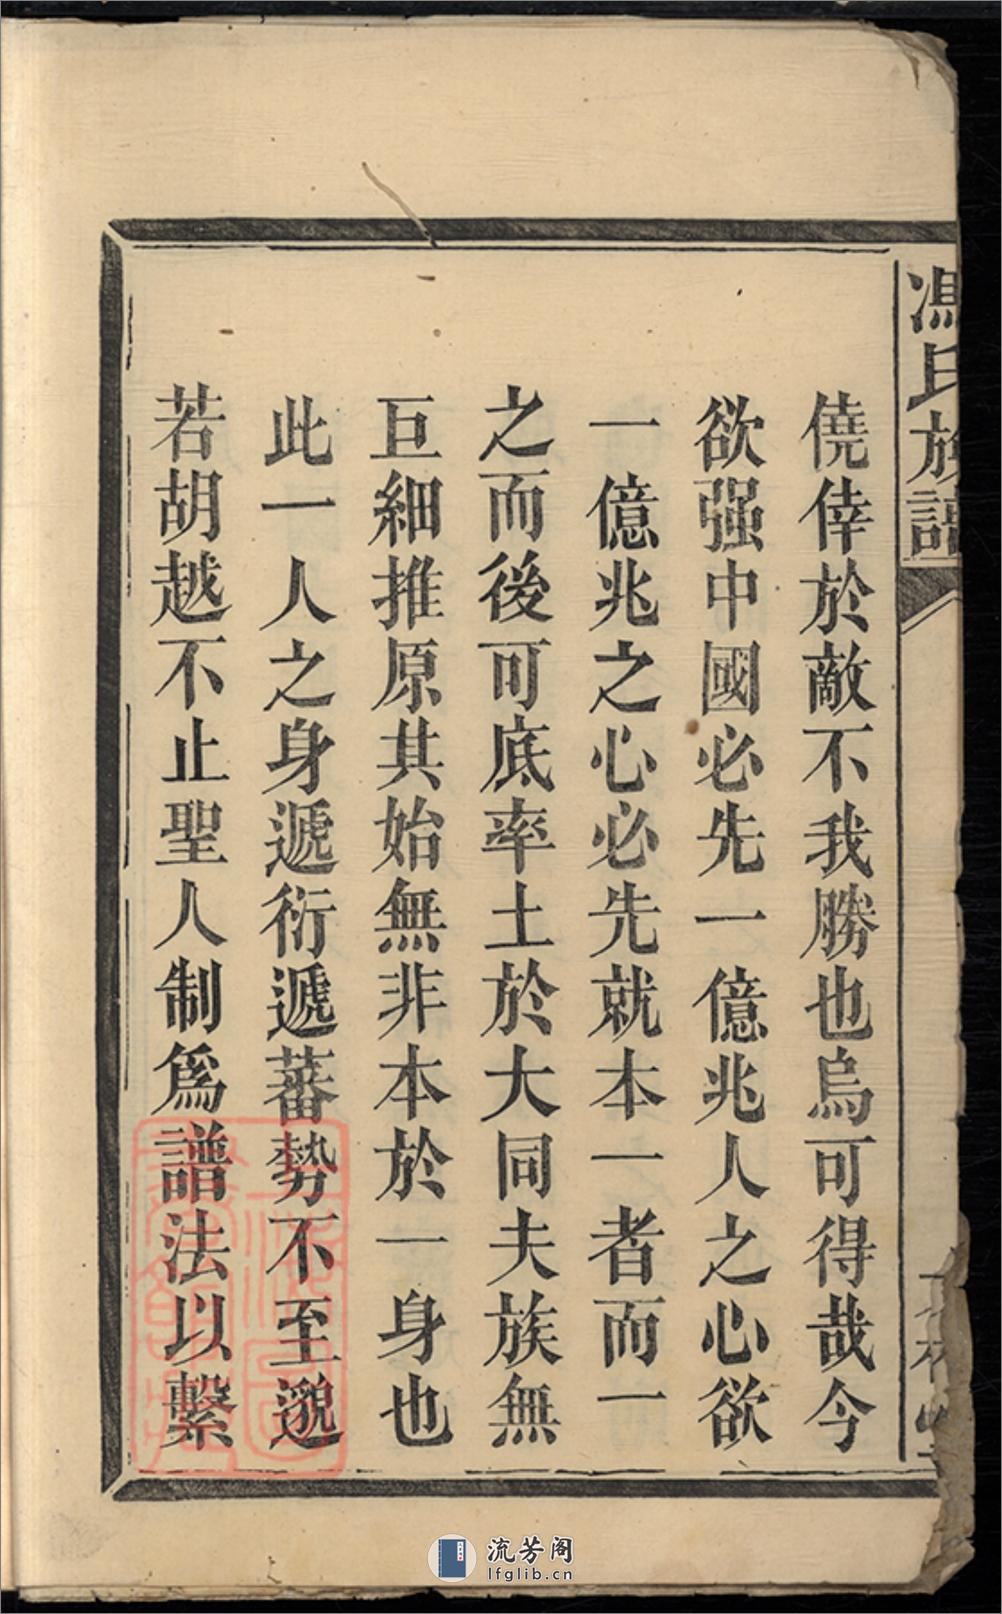 馮氏族譜
僥倖於敵不我勝也烏可得哉今
欲强中國必先一億兆人之心欲
一億兆之心必先就本一者而一
之而後可底率土於大同夫族無
巨細推原其始無非本於一身也
此一人之身遞衍遞蕃勢不至邈
若胡越不止聖人制爲譜法以繫
流芳阁
lfglib.cn